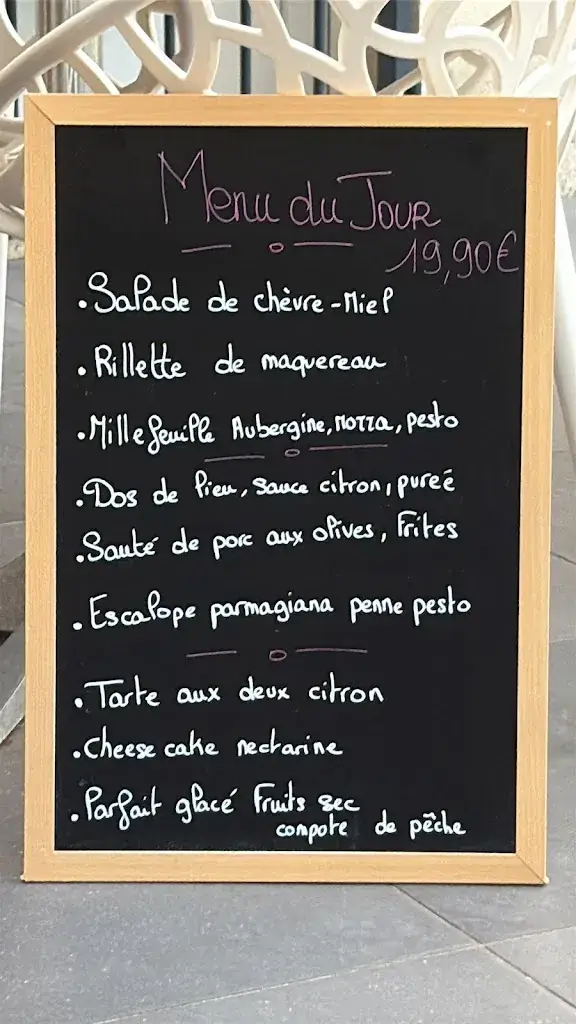 Menu du Jour
19,90€
.Salade de chèvre-Miel
.Rillette de maquereau
.Millefeuille Aubergine, mozza, pesto
.Dos de lieu, Sauce citron, pureé
.Sauté de porc aux olives, Frites
.Escalope parmagiana penne pesto
.Tarte aux deux citron
.Cheese cake nectarine
.Parfait glacé Fruits sec
compote de pêche